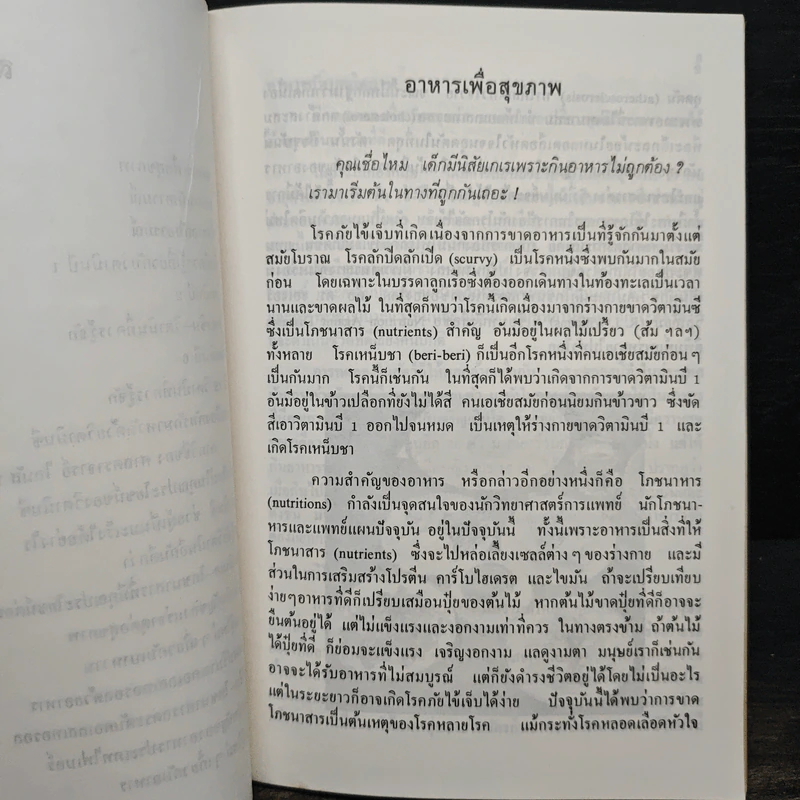 อาหารเพื่อสุขภาพ
คุณเชื่อไหม เด็กมีนิสัยเกเรเพราะกินอาหารไม่ถูกต้อง ?
เรามาเริ่มต้นในทางที่ถูกกันเถอะ !
โรคภัยไข้เจ็บที่เกิดเนื่องจากการขาดอาหารเป็นที่รู้จักกันมาตั้งแต่
สมัยโบราณ โรคลักปิดลักเปิด (scurvy) เป็นโรคหนึ่งซึ่งพบกันมากในสมัย
ก่อน โดยเฉพาะในบรรดาลูกเรือซึ่งต้องออกเดินทางในท้องทะเลเป็นเวลา
นานและขาดผลไม้ ในที่สุดก็พบว่าโรคนี้เกิดเนื่องมาจากร่างกายขาดวิตามินซี
ซึ่งเป็นโภชนาสาร (nutrients) สำคัญ อันมีอยู่ในผลไม้เปรี้ยว (ส้ม ฯลฯ)
ทั้งหลาย โรคเหน็บชา (beri-beri) ก็เป็นอีกโรคหนึ่งที่คนเอเชียสมัยก่อนๆ
เป็นกันมาก โรคนี้ก็เช่นกัน ในที่สุดก็ได้พบว่าเกิดจากการขาดวิตามินบี 1
อันมีอยู่ในข้าวเปลือกที่ยังไม่ได้สี คนเอเชียสมัยก่อนนิยมกินข้าวขาว ซึ่งขัด
สีเอาวิตามินบี 1 ออกไปจนหมด เป็นเหตุให้ร่างกายขาดวิตามินบี 1 และ
เกิดโรคเหน็บชา
ความสำคัญของอาหาร หรือกล่าวอีกอย่างหนึ่งก็คือ โภชนาหาร
(nutritions) กำลังเป็นจุดสนใจของนักวิทยาศาสตร์การแพทย์ นักโภชนา-
หารและแพทย์แผนปัจจุบัน อยู่ในปัจจุบันนี้ ทั้งนี้เพราะอาหารเป็นสิ่งที่ให้
โภชนาสาร (nutrients) ซึ่งจะไปหล่อเลี้ยงเซลล์ต่างๆของร่างกาย และมี
ส่วนในการเสริมสร้างโปรตีน คาร์โบไฮเดรต และไขมัน ถ้าจะเปรียบเทียบ
ง่ายๆอาหารที่ดีก็เปรียบเสมือนปุ๋ยของต้นไม้ หากต้นไม้ขาดปุ๋ยที่ดีก็อาจจะ
ยืนต้นอยู่ได้ แต่ไม่แข็งแรงและงอกงามเท่าที่ควร ในทางตรงข้าม ถ้าต้นไม้
ได้ปุ๋ยที่ดี ก็ย่อมจะแข็งแรง เจริญงอกงาม แลดูงามตา มนุษย์เราก็เช่นกัน
อาจจะได้รับอาหารที่ไม่สมบูรณ์ แต่ก็ยังดำรงชีวิตอยู่ได้โดยไม่เป็นอะไร
แต่ในระยะยาวก็อาจเกิดโรคภัยไข้เจ็บได้ง่าย ปัจจุบันนี้ได้พบว่าการขาด
โภชนาสารเป็นต้นเหตุของโรคหลายโรค แม้กระทั่งโรคหลอดเลือดหัวใจ